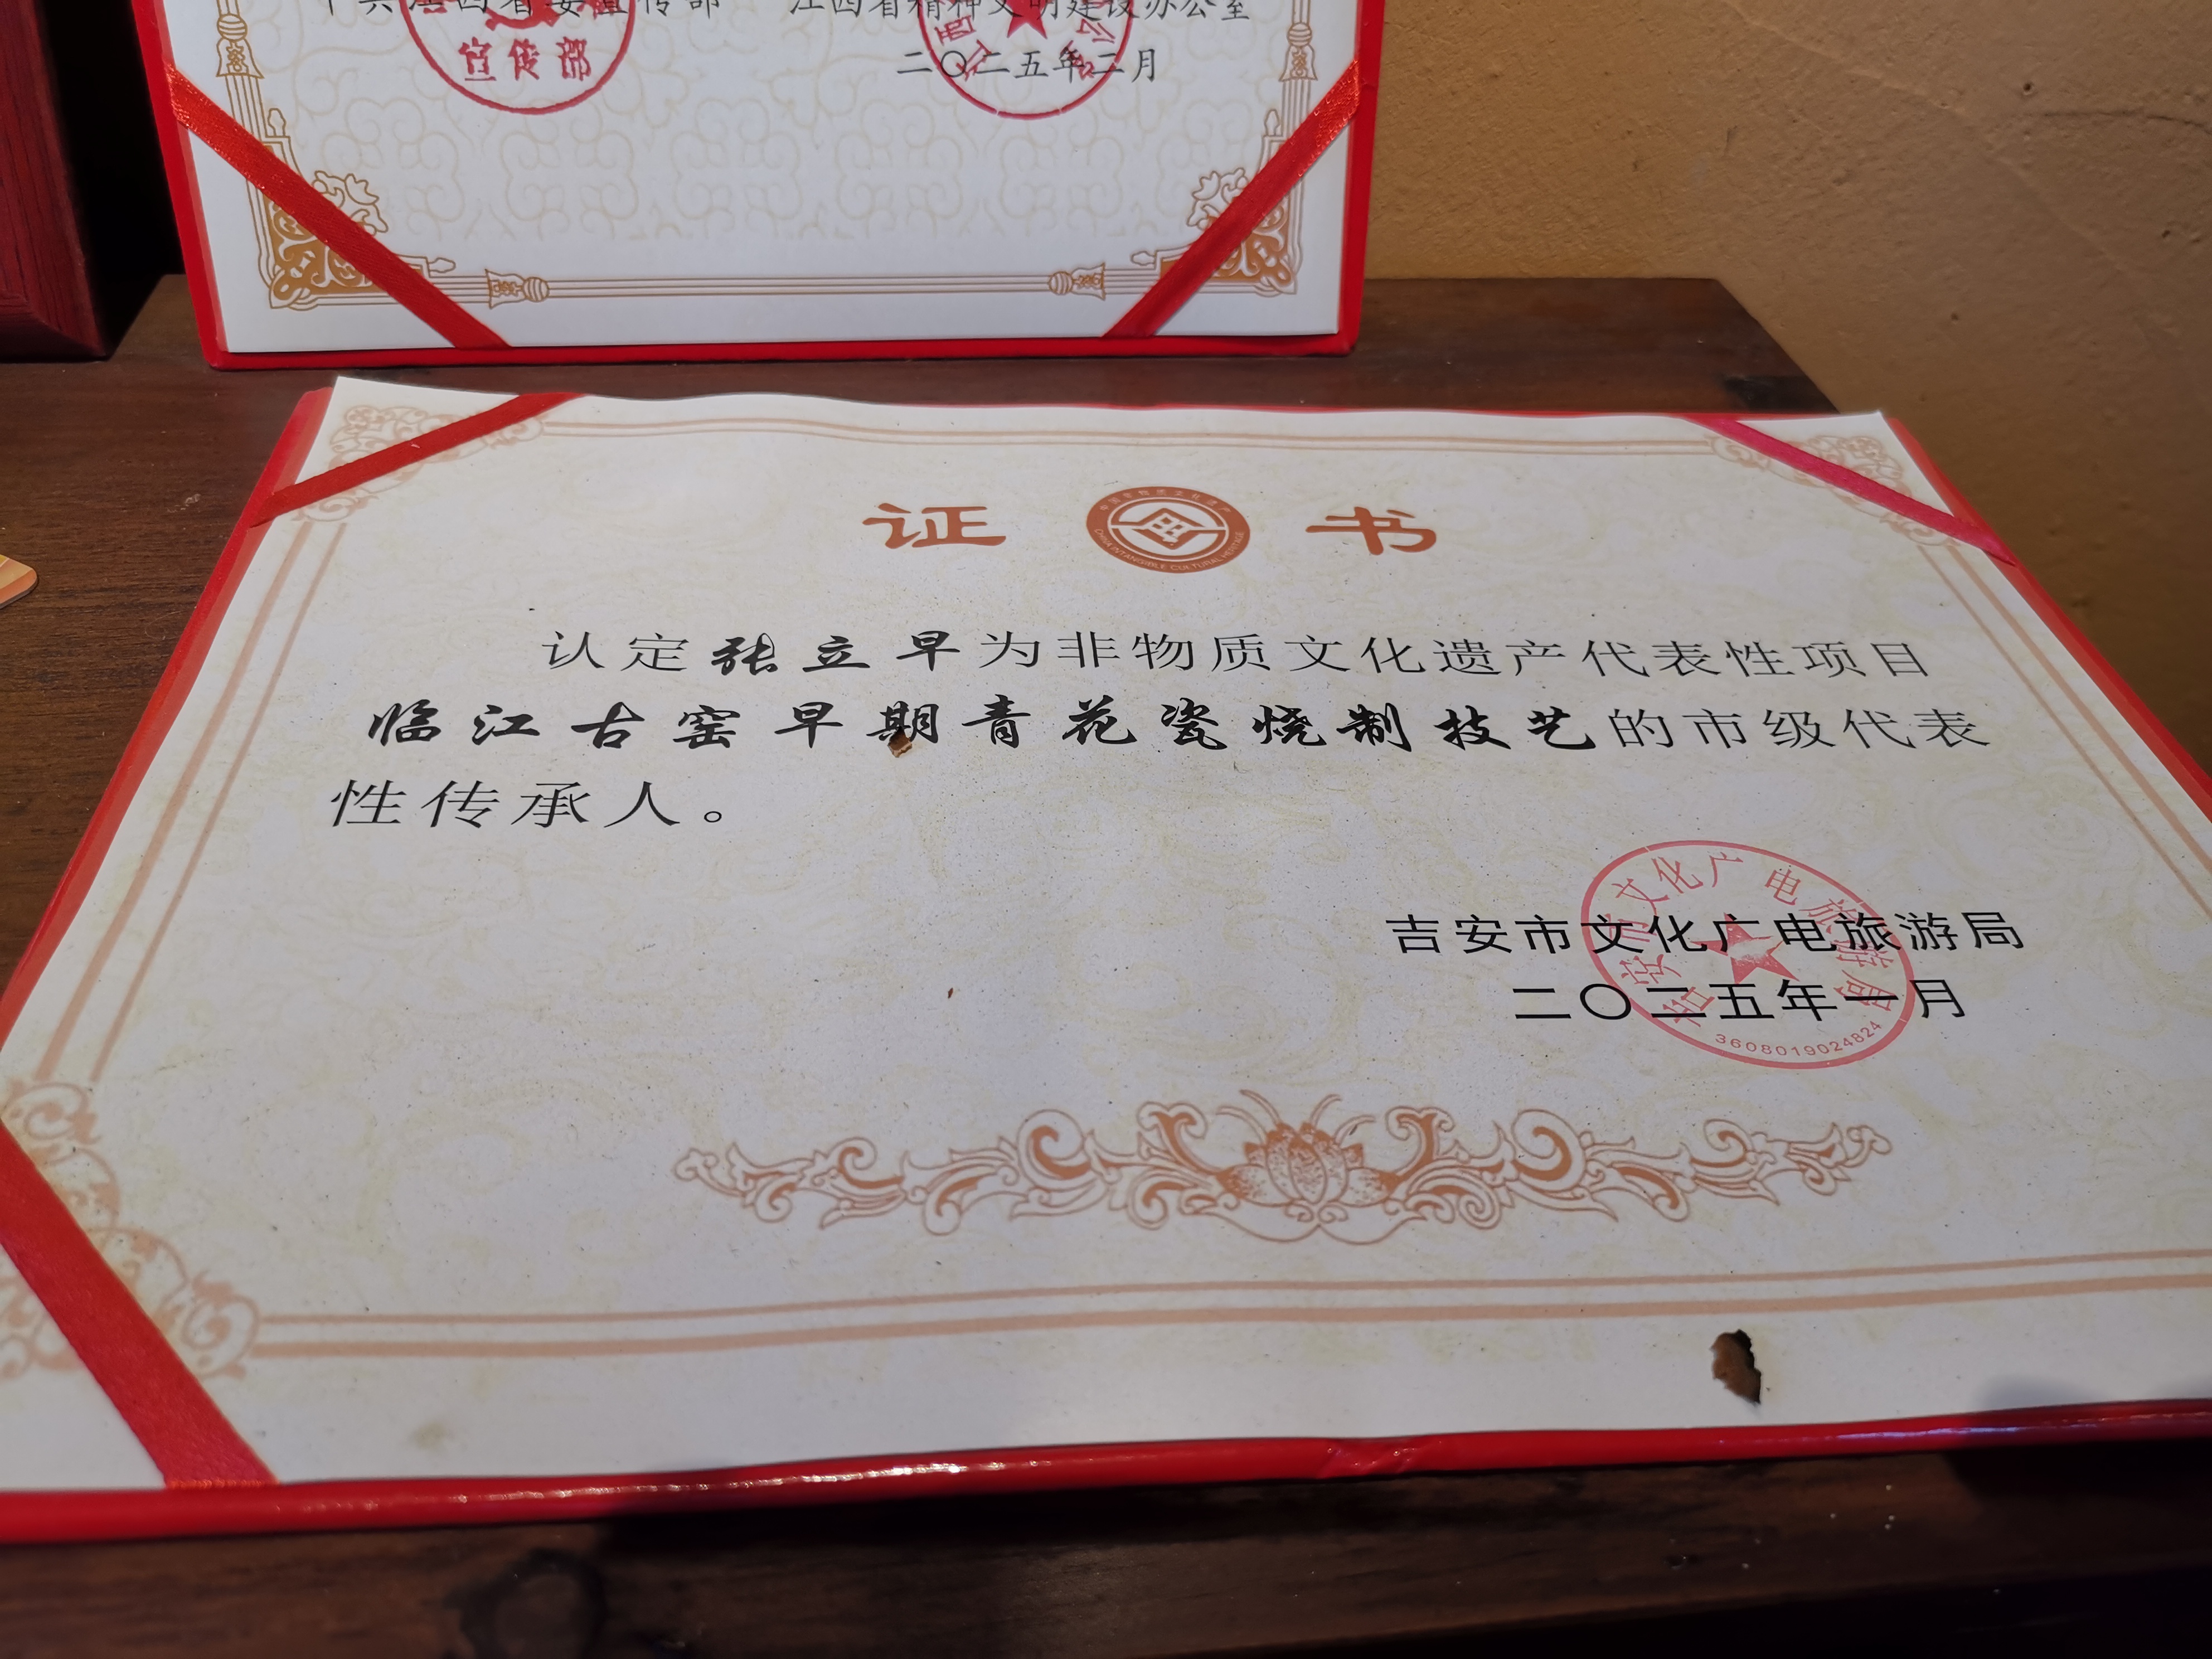 中共江西省委宣传部 江西省精神文明建设办公室
宣传部
二〇二五年二月
证 书
中国非物质文化遗产
CHINA INTANGIBLE CULTURAL HERITAGE
认定张立早为非物质文化遗产代表性项目
临江古窑早期青花瓷烧制技艺的市级代表
性传承人。
吉安市文化广电旅游局
二〇二五年一月
吉安市文化广电旅游局
3608019024824